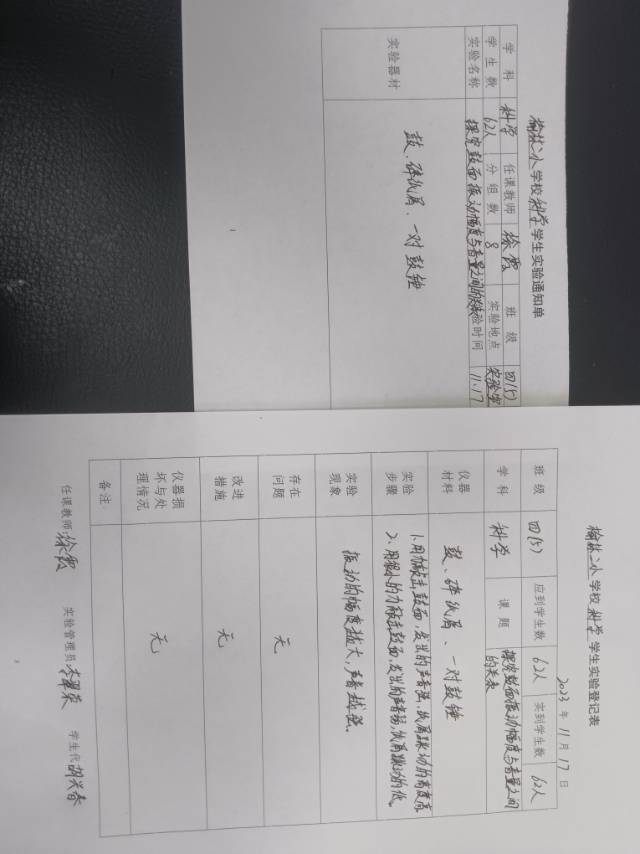 榆林二小学校科学学生实验通知单
学科 科学 任课教师 徐霞 班级 四(5)
学生数 62人 分组数 8 实验地点 实验室
实验名称 探究鼓面振动幅度与音量之间的关系 实验时间 11.17
实验器材 鼓、碎纸屑、一对鼓锤
榆林二小学校科学学生实验登记表
2023年11月17日
班级 四(5) 应到学生数 62人 实到学生数 62人
学科 科学 课题 探究鼓面振动幅度与音量之间
的关系
仪器材料 鼓、碎纸屑、一对鼓锤
实验步骤 1.用力敲击鼓面,发出的声音强,纸屑跳动的高度高
2、用很小的力敲击鼓面,发出的声音弱,纸屑跳动的低
实验现象 振动的幅度越大,声音越强。
存在问题 无
改进措施 无
仪器损坏与处理情况 无
备注
任课教师:徐霞 实验管理员 学生代